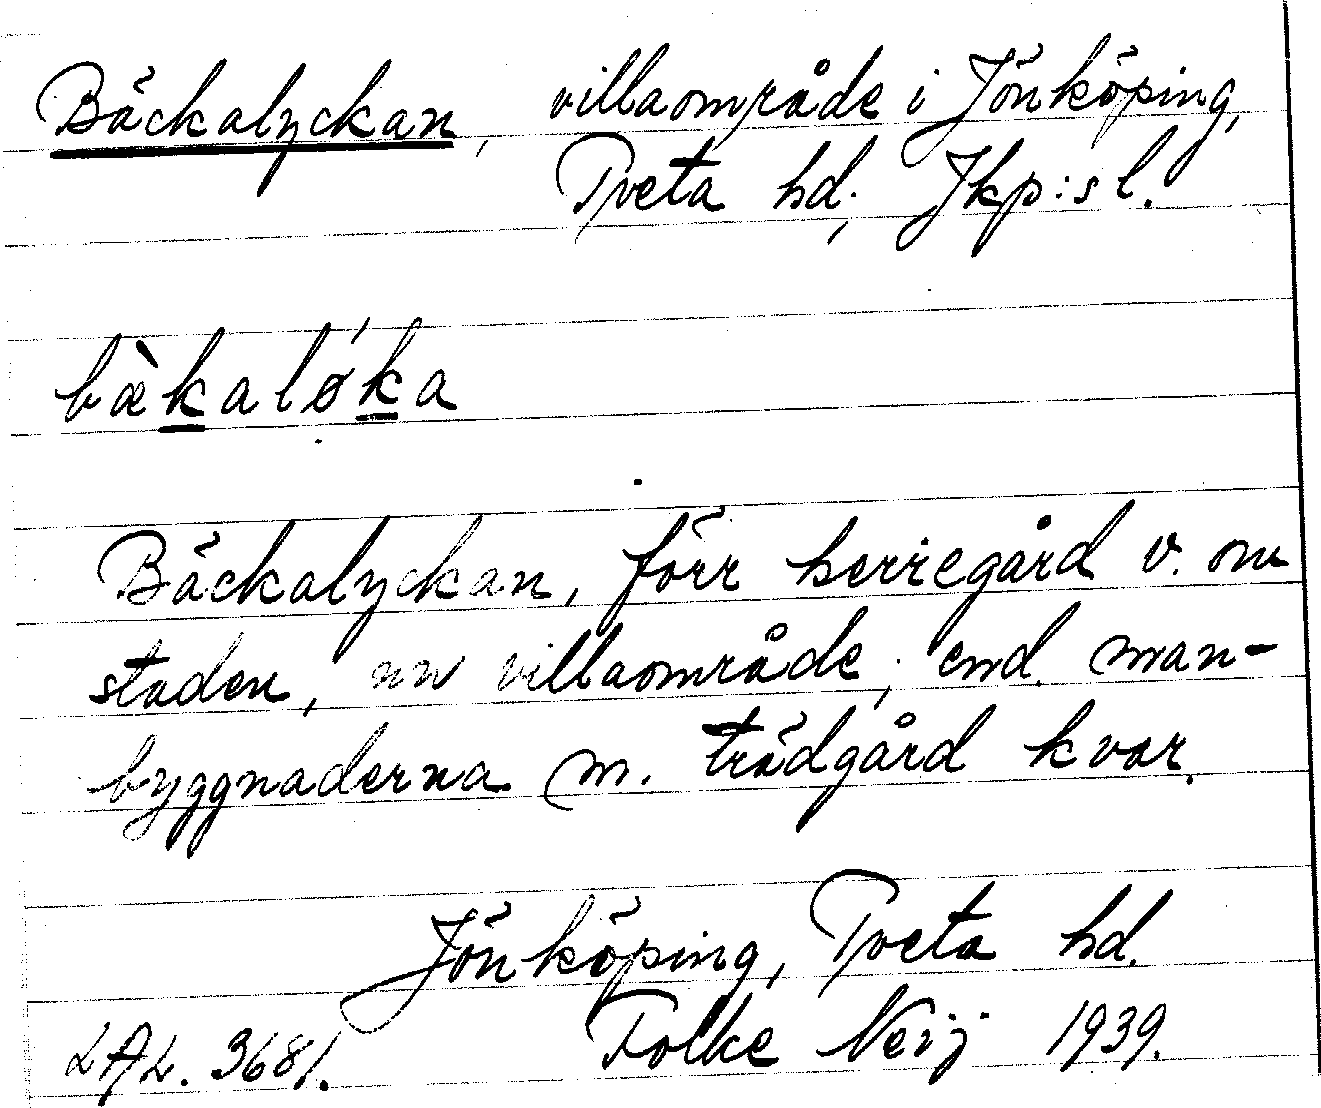 Bäckalyckan, villaområde i Jönköping,
Tveta hd, Jkp:s l.
bæ̀kalǿka
Bäckalyckan, förr herregård v. om
staden, nu villaområde, end. man-
byggnaderna m. trädgård kvar.
Jönköping, Tveta hd.
LAL. 3681. Folke Neij 1939.